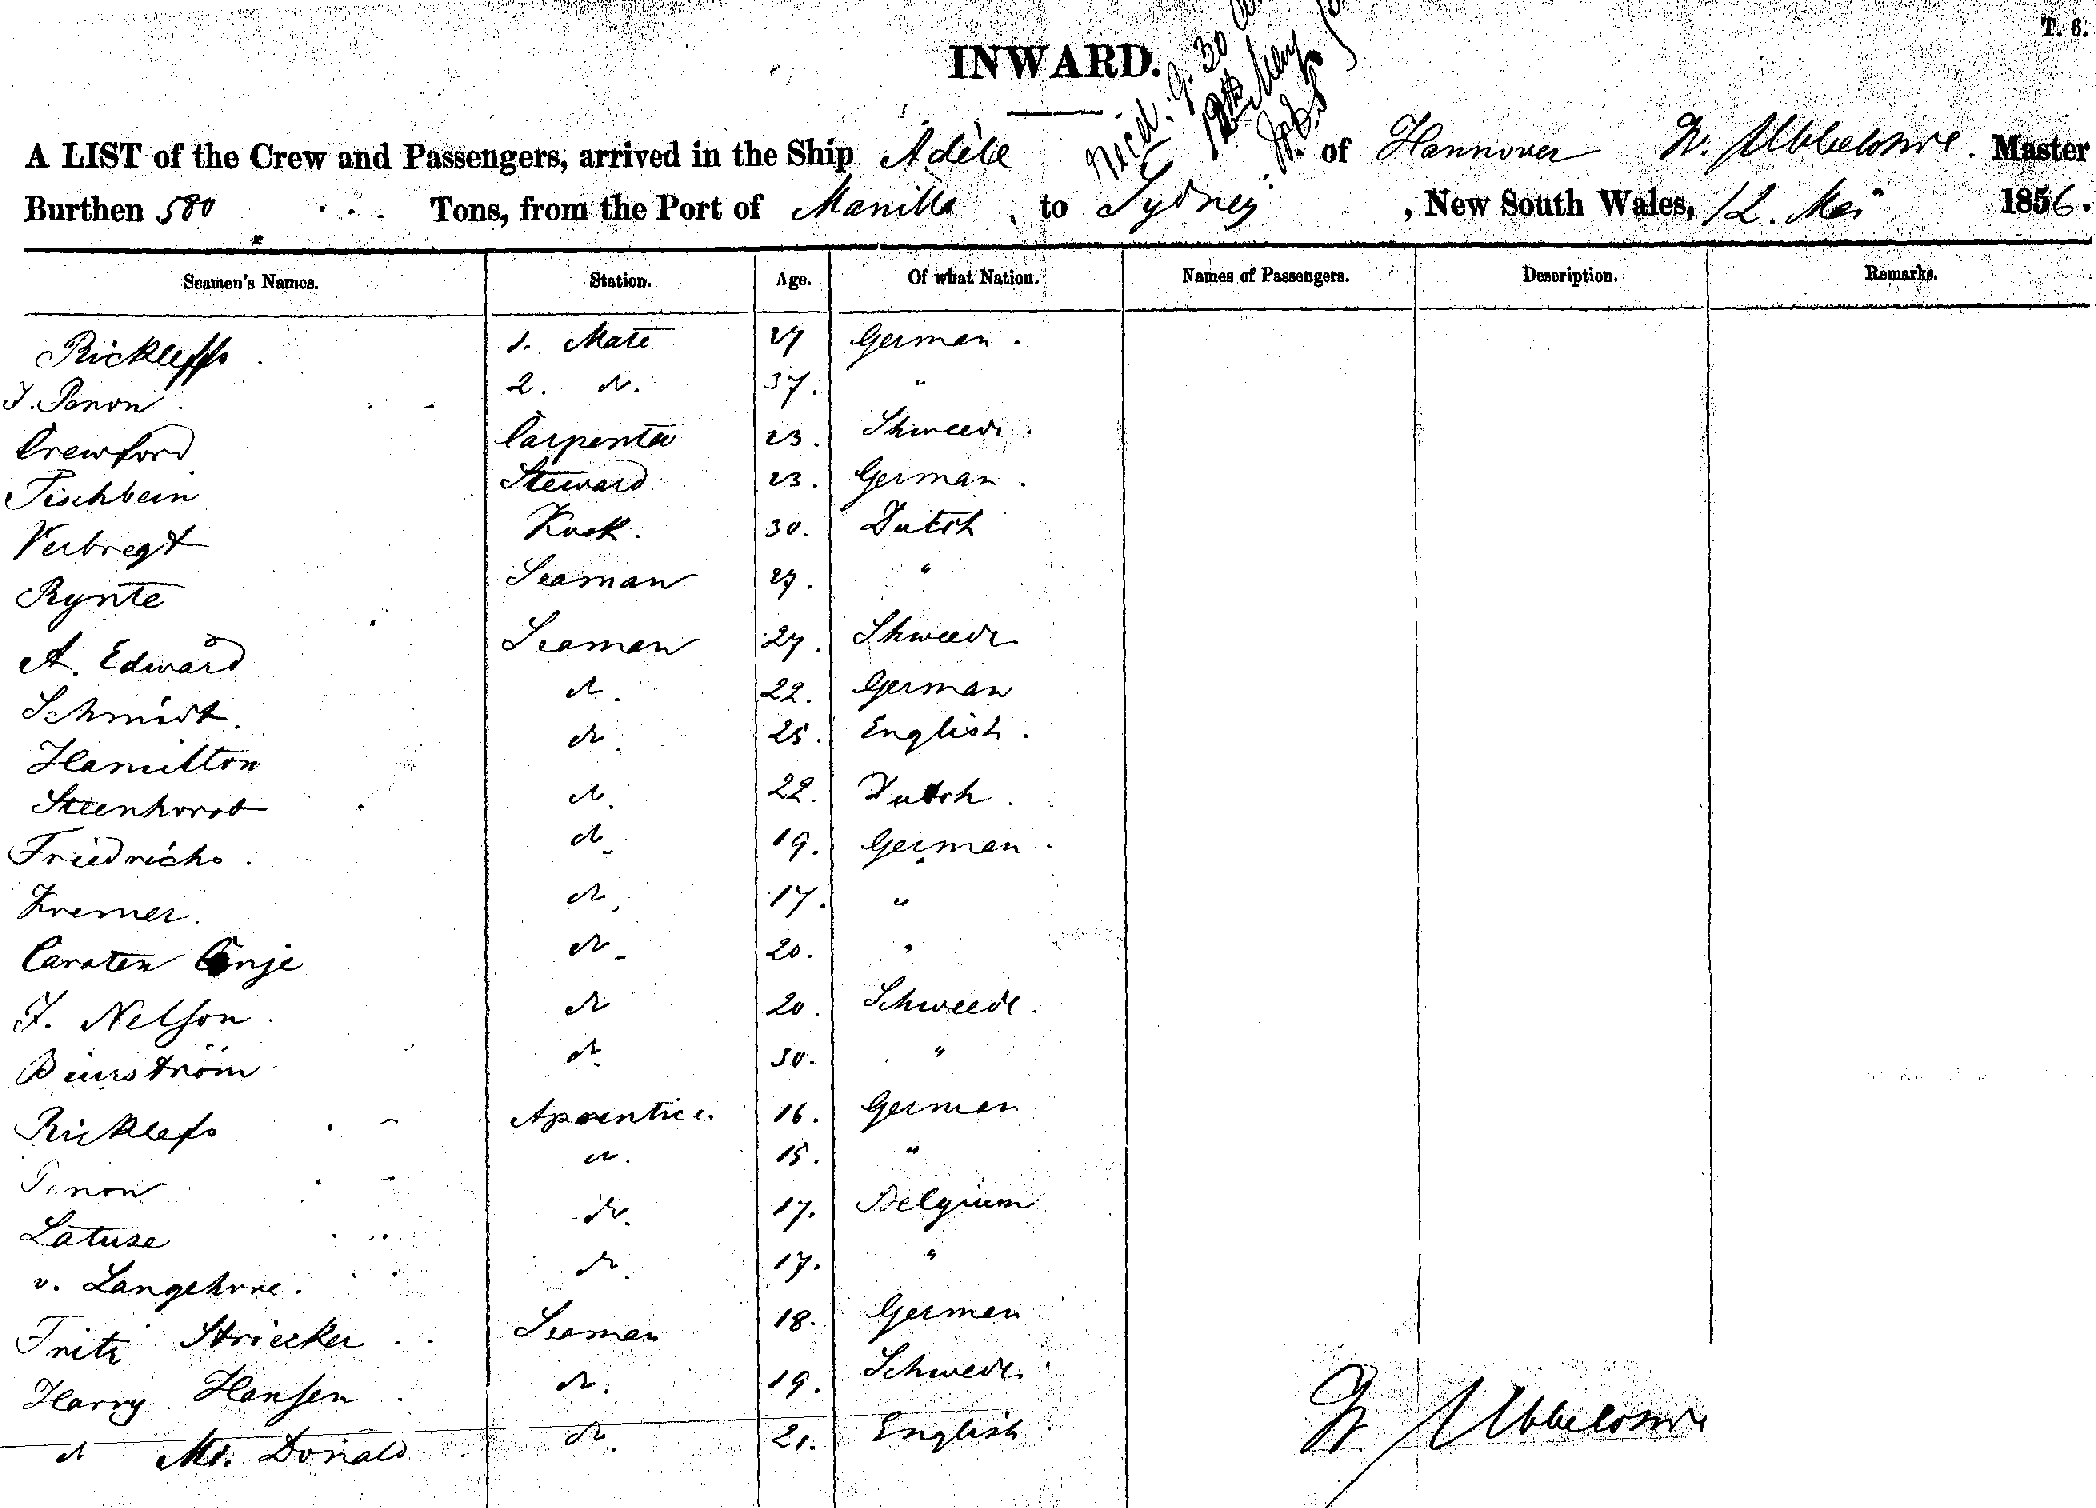 T. 6.
INWARD.
Recd. 9.30
12th May
A LIST of the Crew and Passengers, arrived in the Ship Adéle of Hannover Fr. Ubbelohde. Master
Burthen 580 Tons, from the Port of Manilla, to Sydney, New South Wales, 12. Mai 1856.
Seamen's Names. Station. Age. Of what Nation. Names of Passengers. Description. Remarks.
Rickleffs 1. Mate 29 German.
J. Penon 2. do. 37. "
Crewford Carpenter 23. Shweede
Tischbein Steward 23. German.
Verbregt Kook. 30. Dutch
Rynte Seaman 27. "
A. Edward Seaman 27. Shweede
Schmidt. do. 22. German
Hamilton do. 25. English.
Steenhorst do. 22. Dutch.
Friedrichs. do. 19. German.
Kremer. do. 17. "
Carsten do. 20. "
J. Nelson do 20. Schweede.
do. 30. "
Ricklefs Aprentice. 16. German
Penon do. 15. "
Latuse do. 17. Belgium
v. Langehove. do. 17. "
Fritz Striecker Seaman 18. German
Harry Hansen do. 19. Schwede.
do Mc. Donald do. 21. English
Fr Ubbelohde